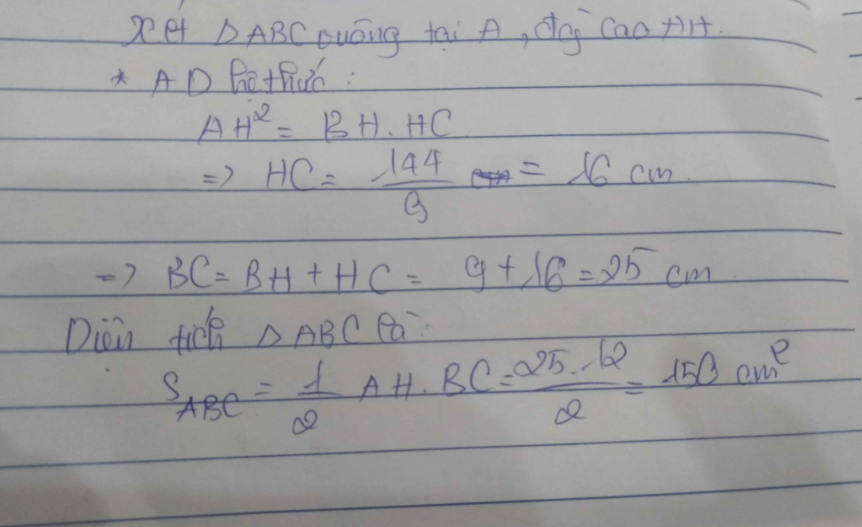 Xét ΔABC vuông tại A, đg cao AH.
* AD hệ thức:
AH² = BH.HC
=> HC = 144/9 = 16 cm.
=> BC = BH + HC = 9 + 16 = 25 cm.
Diện tích ΔABC là:
S_ABC = 1/2 AH.BC = 25.12/2 = 150 cm²